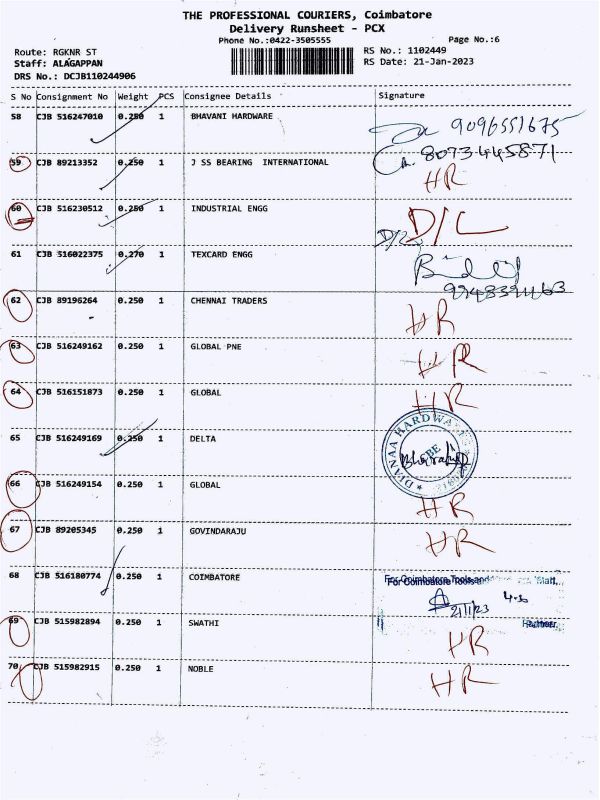 THE PROFESSIONAL COURIERS, Coimbatore
Delivery Runsheet - PCX
Phone No.:0422-3505555 Page No.:6
Route: RGKNR ST RS No.: 1102449
Staff: ALAGAPPAN RS Date: 21-Jan-2023
DRS No.: DCJB110244906
S No Consignment No Weight PCS Consignee Details Signature
58 CJB 516247010 0.250 1 BHAVANI HARDWARE 9096551675
8073445871
59 CJB 89213352 0.250 1 J SS BEARING INTERNATIONAL HR
60 CJB 516230512 0.250 1 INDUSTRIAL ENGG D/L
61 CJB 516022375 0.270 1 TEXCARD ENGG
62 CJB 89196264 0.250 1 CHENNAI TRADERS HR
63 CJB 516249162 0.250 1 GLOBAL PNE HR
64 CJB 516151873 0.250 1 GLOBAL HR
65 CJB 516249169 0.250 1 DELTA
66 CJB 516249154 0.250 1 GLOBAL HR
67 CJB 89205345 0.250 1 GOVINDARAJU HR
68 CJB 516180774 0.250 1 COIMBATORE For Coimbatore Tools and
21/1/23
Partner
69 CJB 515982894 0.250 1 SWATHI HR
70 CJB 515982915 0.250 1 NOBLE HR